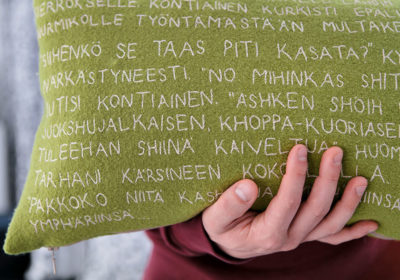 KONTIAINEN KURISTI
URMIKOLLE TYÖNTÄMÄSTÄÄN MULTAKE
"SIIHENKÖ SE TAAS PITI KASATA?"
NÄRKÄSTYNEESTI. "NO MIHINKÄS SHIT
UTISI KONTIAINEN. "ASHKEN SHÖIH
JUOKSHUJALKAISEN, KHOPPA-KUORIASE
TULEEHAN SHIINÄ KAIVELTUA." HUOM
TARHANI KÄRSINEEN
"PAKKOKO NIITÄ INSA
YMPHÄRIINSÄ